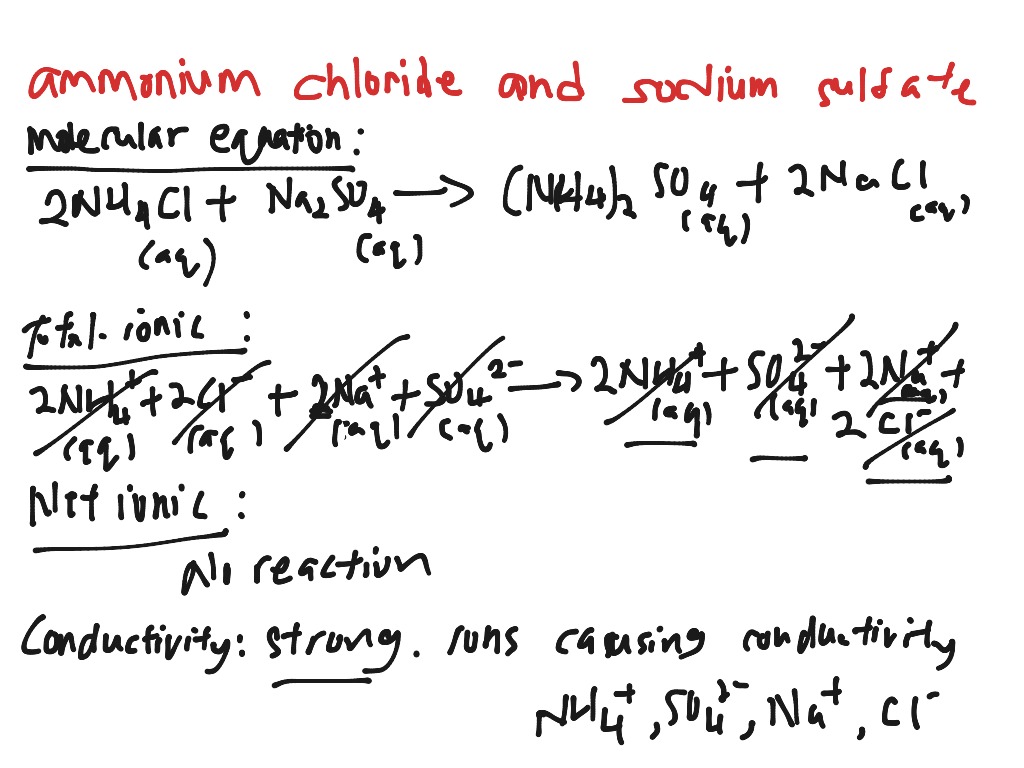 ammonium chloride and sodium sulfate
molecular equation:
2NH4Cl + Na2SO4 → (NH4)2 SO4 + 2NaCl
(aq) (aq) (aq) (aq)
total ionic:
2NH4+ + 2Cl- + 2Na+ + SO4 2- → 2NH4+ + SO4 2- + 2Na+ +
(aq) (aq) (aq) (aq) (aq) (aq) (aq)
2Cl-
(aq)
Net ionic:
No reaction
Conductivity: strong. Ions causing conductivity
NH4+, SO4 2-, Na+, Cl-